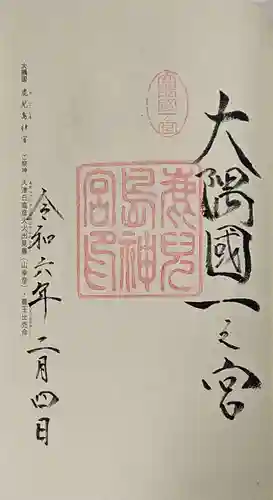 大隅國一之宮
大隅國一宮
鹿兒島神宮印
令和六年二月四日
大隅国 鹿児島神宮 ご祭神 天津日高彦火火出見尊（山幸彦）・豊玉比売命